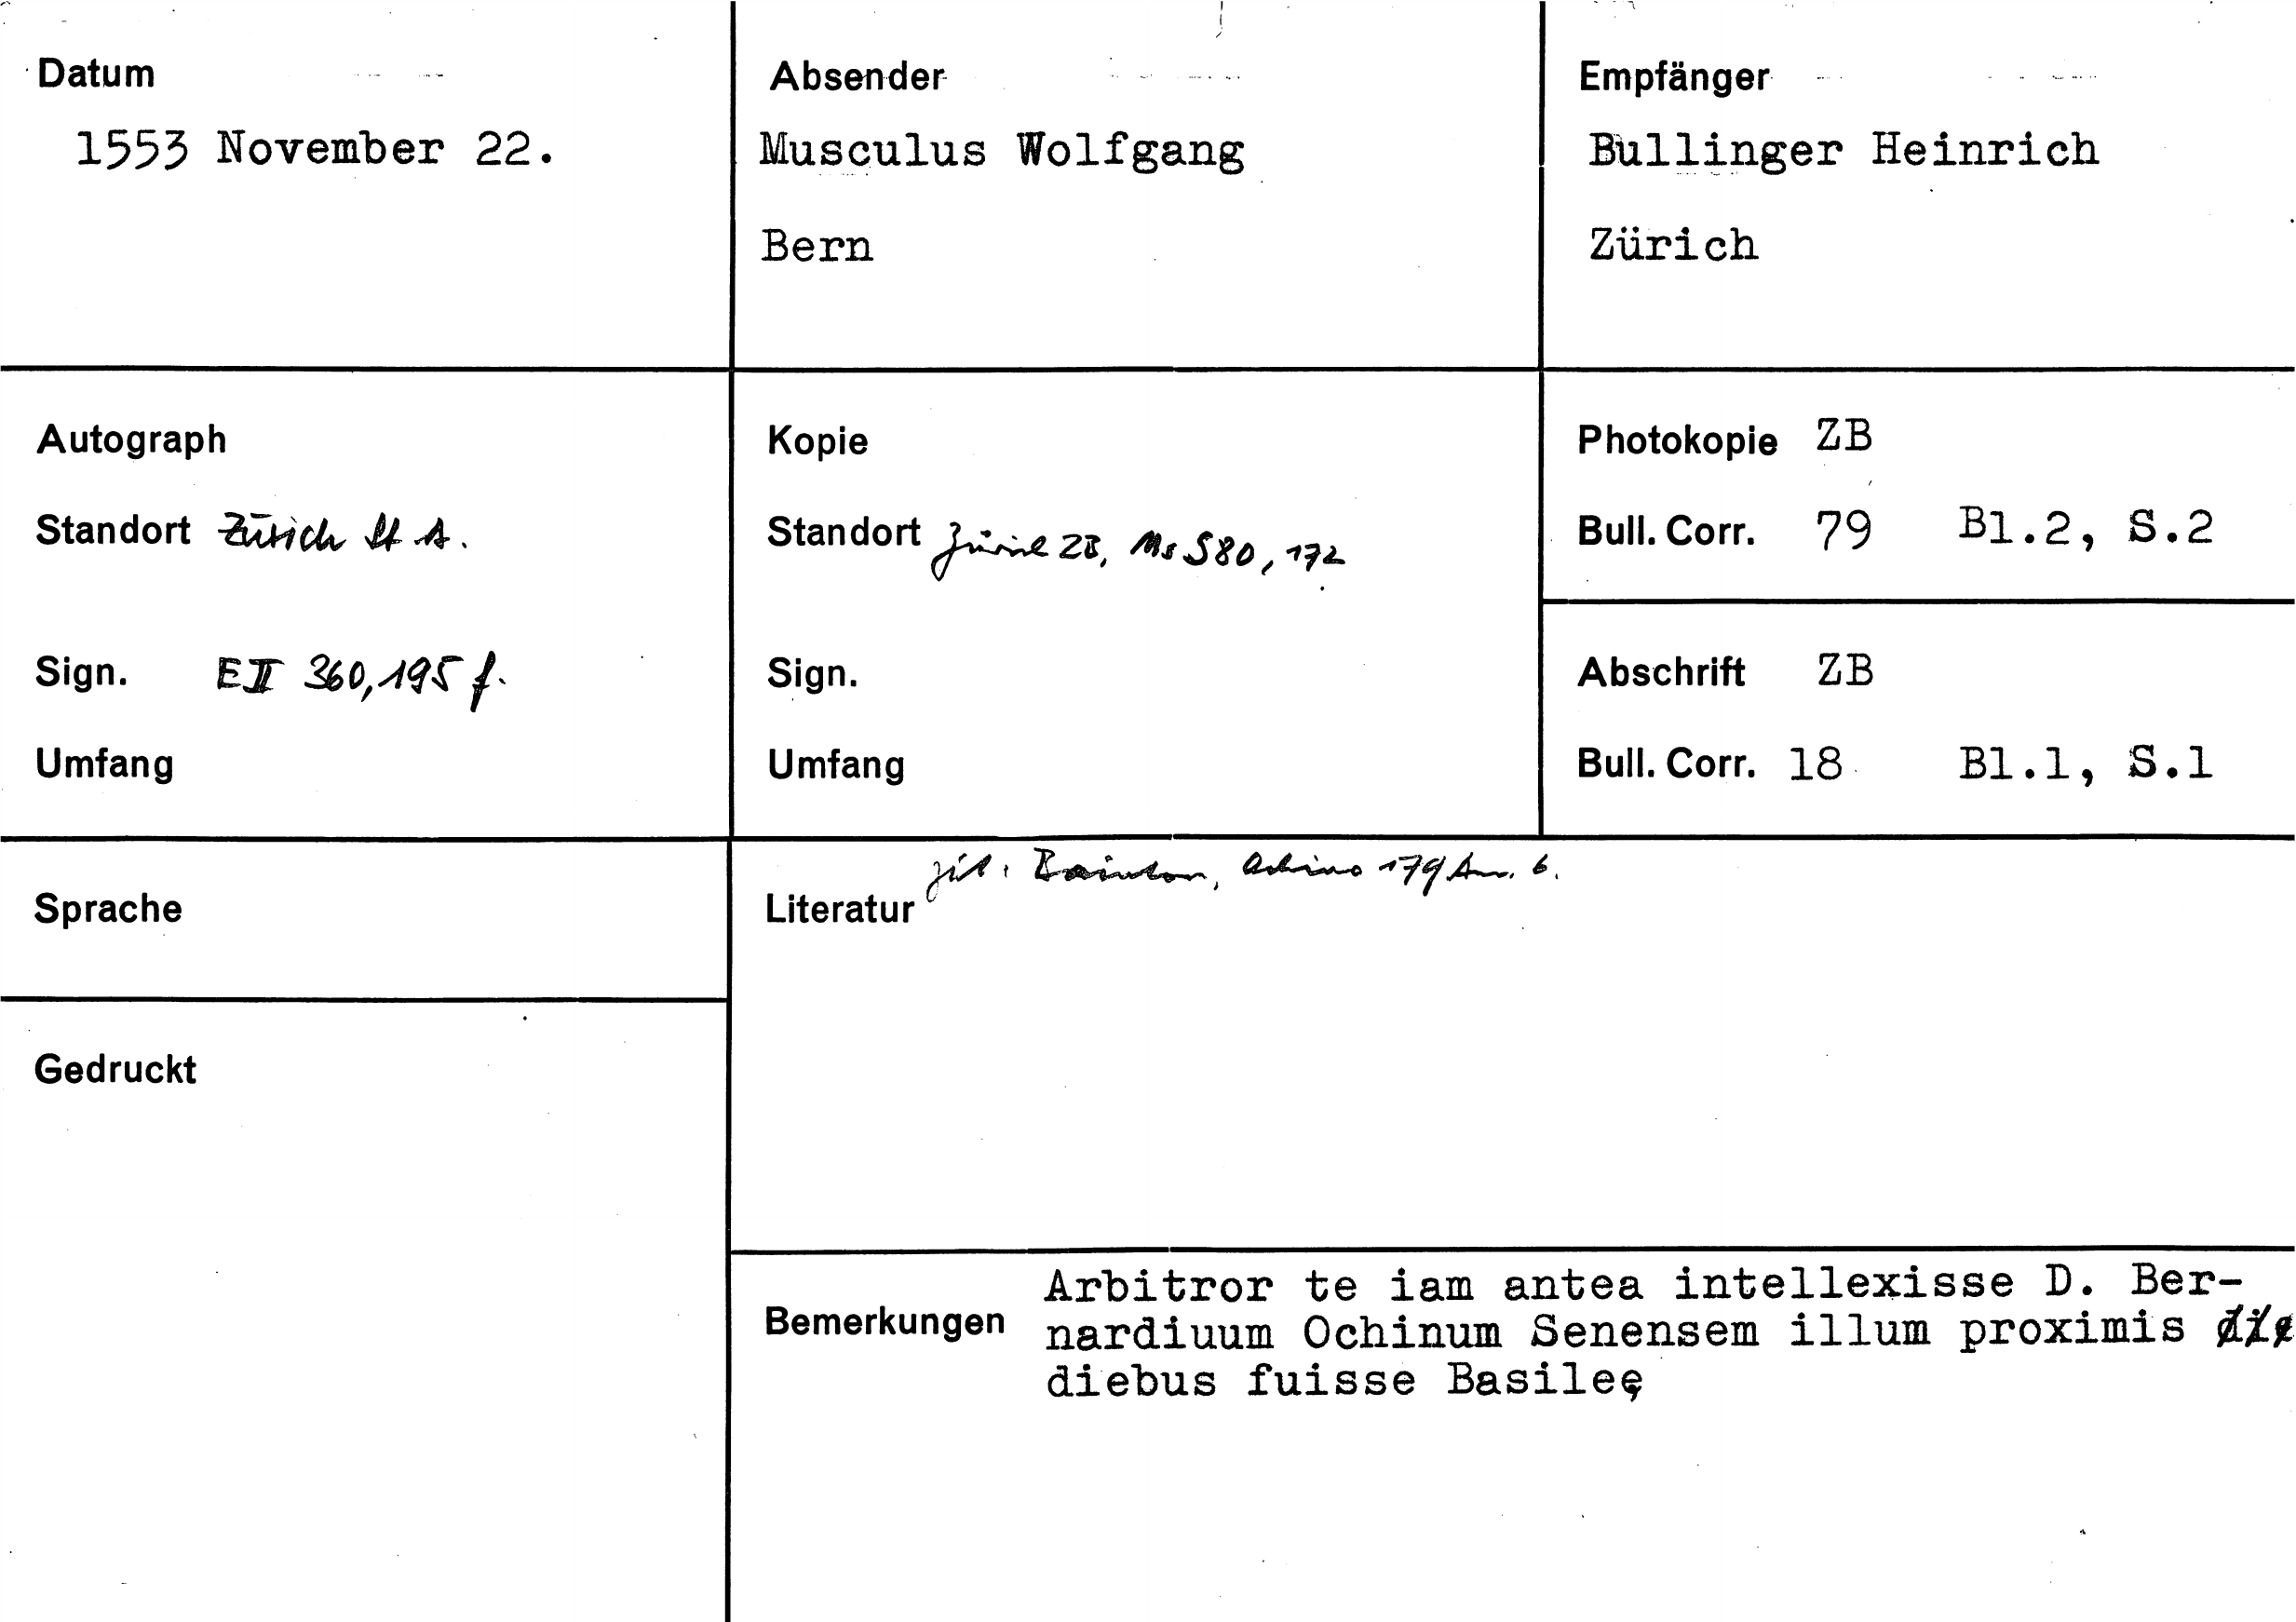 Datum
1553 November 22.
Absender
Musculus Wolfgang
Bern
Empfänger
Bullinger Heinrich
Zürich
Autograph
Standort Zürich St A.
Sign. E II 360,195 f.
Umfang
Kopie
Standort Zürich ZB, Ms S 80, 172
Sign.
Umfang
Photokopie ZB
Bull. Corr. 79 Bl.2, S.2
Abschrift ZB
Bull. Corr. 18 Bl.1, S.1
Sprache
Gedruckt
zit. Bainton, Ochino 179 Anm. 6.
Literatur
Bemerkungen
Arbitror te iam antea intellexisse D. Ber-
nardiuum Ochinum Senensem illum proximis die
diebus fuisse Basileę